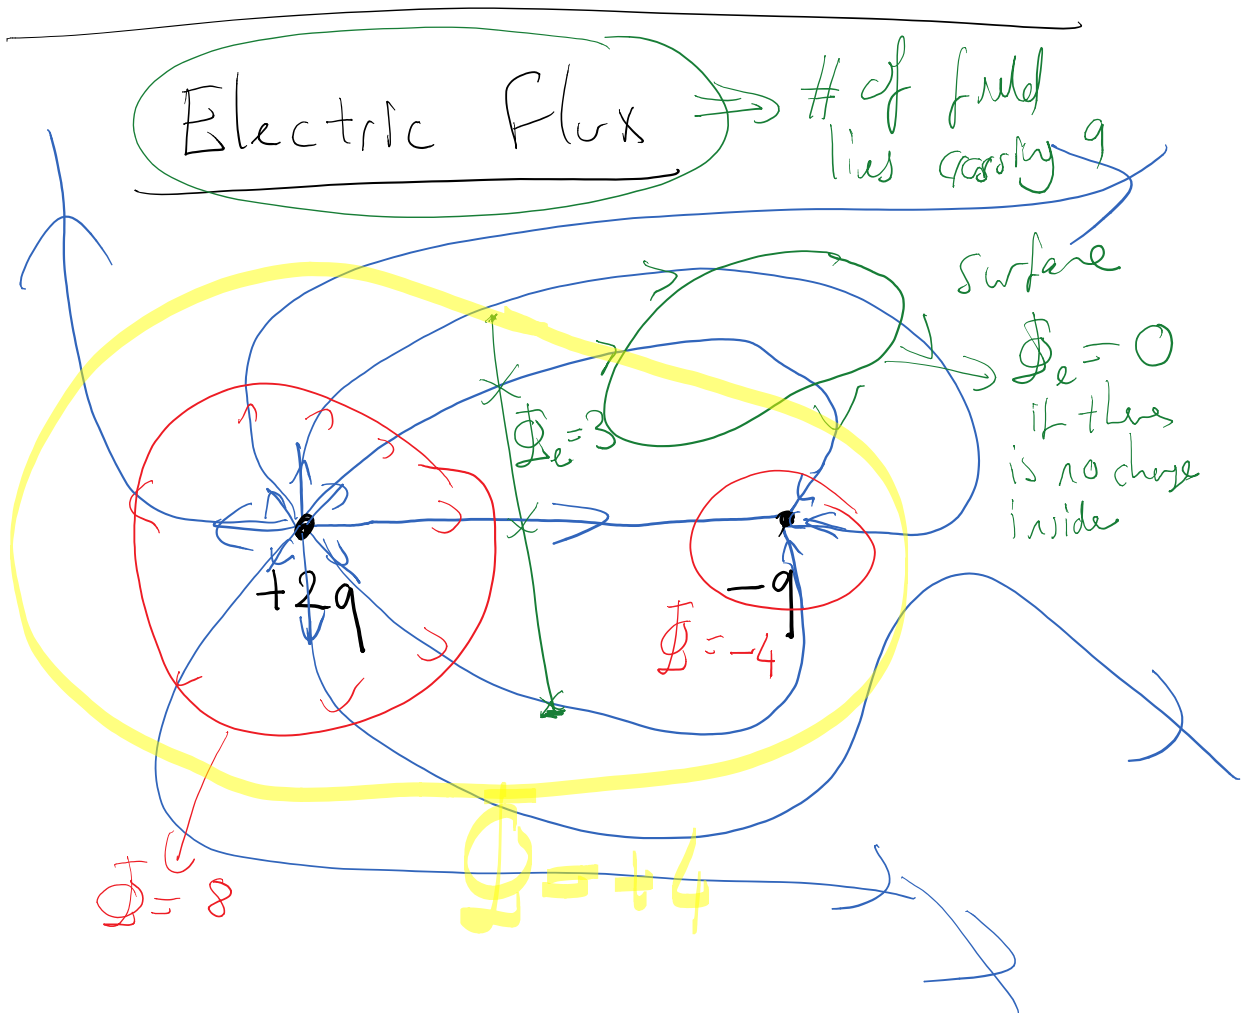 Electric Flux ⇒ # of field
lies crossing a
surface
Φe = 0
if there
is no charge
inside
Φe = 3
+2q
-q
Φ = -4
Φ = +4
Φ = 8